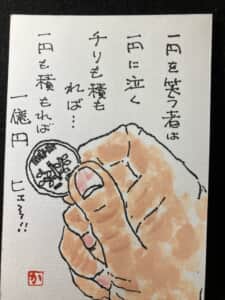 一円を笑う者は
一円に泣く
チリも積も
れば…
一円も積もれば
一億円
ヒェ〜!!
か